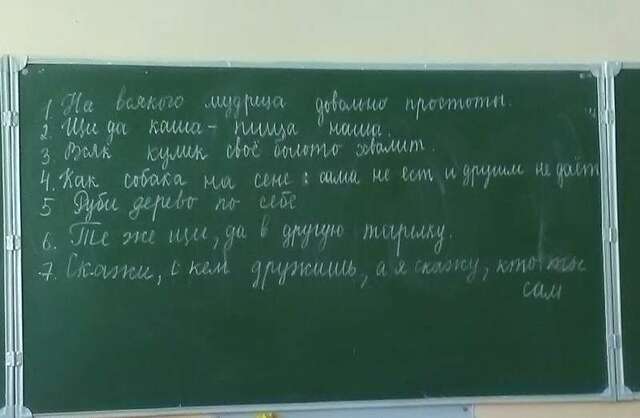 1. На всякого мудреца довольно простоты.
2. Щи да каша - пища наша.
3. Всяк кулик своё болото хвалит.
4. Как собака на сене: сама не ест и другим не даёт
5 Руби дерево по себе
6. Те же щи, да в другую тарелку.
7. Скажи, с кем дружишь, а я скажу, кто ты
сам